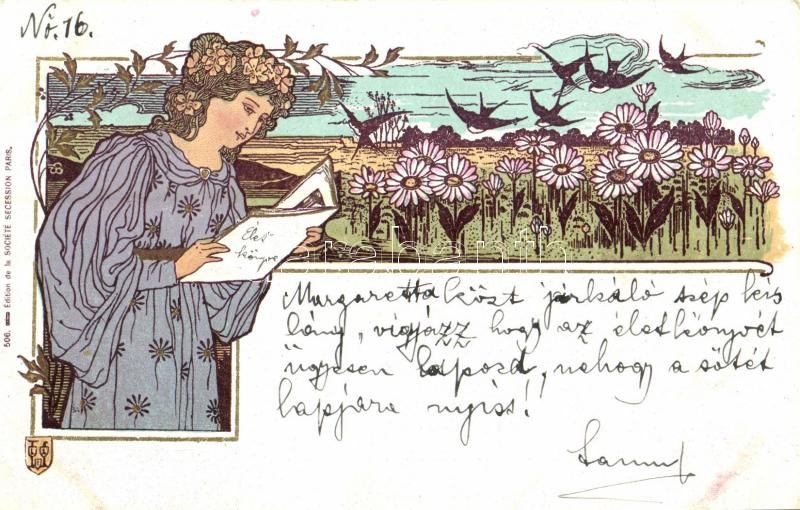 Nó. 16.
506. Edition de la SOCIÉTÉ SECESSION PARIS.
Élet
könyve
Margaretta közt járkáló szép kis
lány, vigjázz hogy az életkönyvét
ügyesen lapozd, nehogy a sötét
lapjára nyiss!